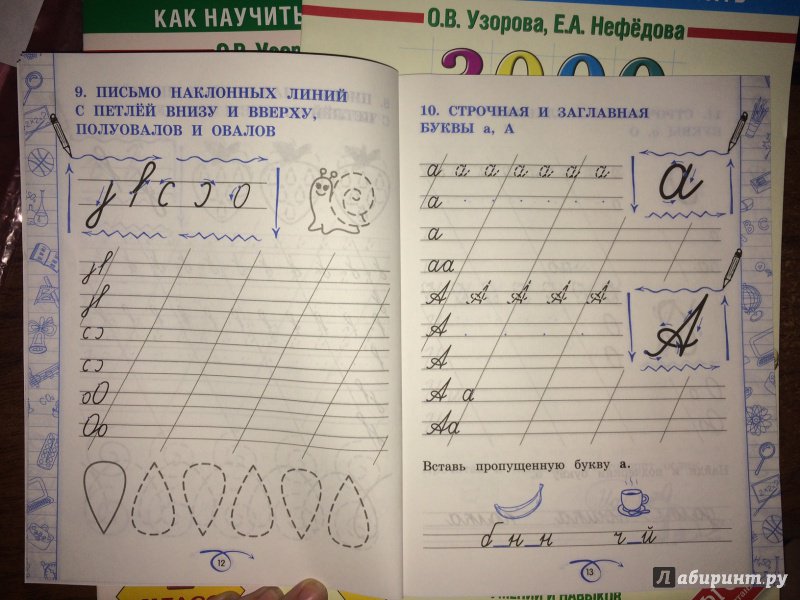 КАК НАУЧИТЬ
О.В. Узорова, Е.А. Нефёдова
9. ПИСЬМО НАКЛОННЫХ ЛИНИЙ
С ПЕТЛЁЙ ВНИЗУ И ВВЕРХУ,
ПОЛУОВАЛОВ И ОВАЛОВ
12
10. СТРОЧНАЯ И ЗАГЛАВНАЯ
БУКВЫ а, А
а а а а а а а
а
а
аа
А А А А А
А
А
А а
Аа
а
А
Вставь пропущенную букву а.
б_н_н ч_й
13
УМЕНИЙ И НАВЫКОВ
Лабиринт.ру